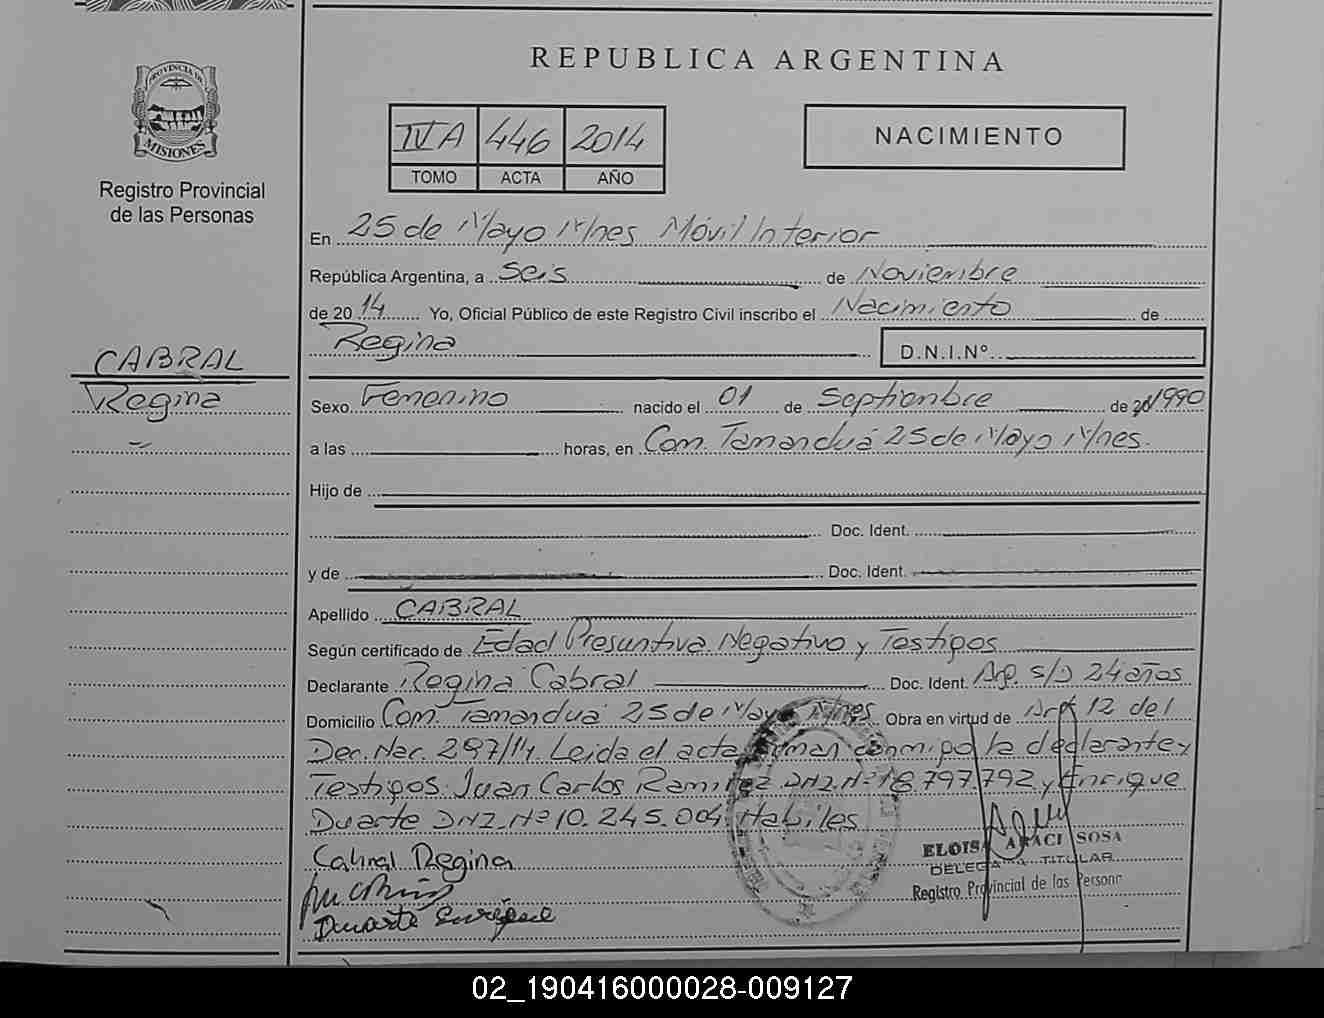 REPUBLICA ARGENTINA
PROVINCIA DE
MISIONES
Registro Provincial
de las Personas
IV A 446 2014
TOMO ACTA AÑO
NACIMIENTO
En 25 de Mayo Mnes Móvil Interior
República Argentina, a Seis de Noviembre
de 2014 Yo, Oficial Público de este Registro Civil inscribo el Nacimiento de
Regina D.N.I.Nº
CABRAL
Regina
Sexo Femenino nacido el 01 de Septiembre de 1990
a las horas, en Com. Tamanduá 25 de Mayo Mnes.
Hijo de
Doc. Ident.
y de Doc. Ident.
Apellido CABRAL
Según certificado de Edad Presuntiva Negativo y Testigos
Declarante Regina Cabral Doc. Ident. Arg. S/D 24 años
Domicilio Com. Tamanduá 25 de Mayo Mnes Obra en virtud de Art 12 del
Dec. Nac. 297/14. Leida el acta firman conmigo la declarante y
Testigos Juan Carlos Ramirez DNI. Nº 16.797.792 y Enrique
Duarte DNI. Nº 10.245.004. Habiles
Cabral Regina
Duarte Enrique
ELOISA ARACI SOSA
DELEGADA TITULAR
Registro Provincial de las Personas
02_190416000028-009127